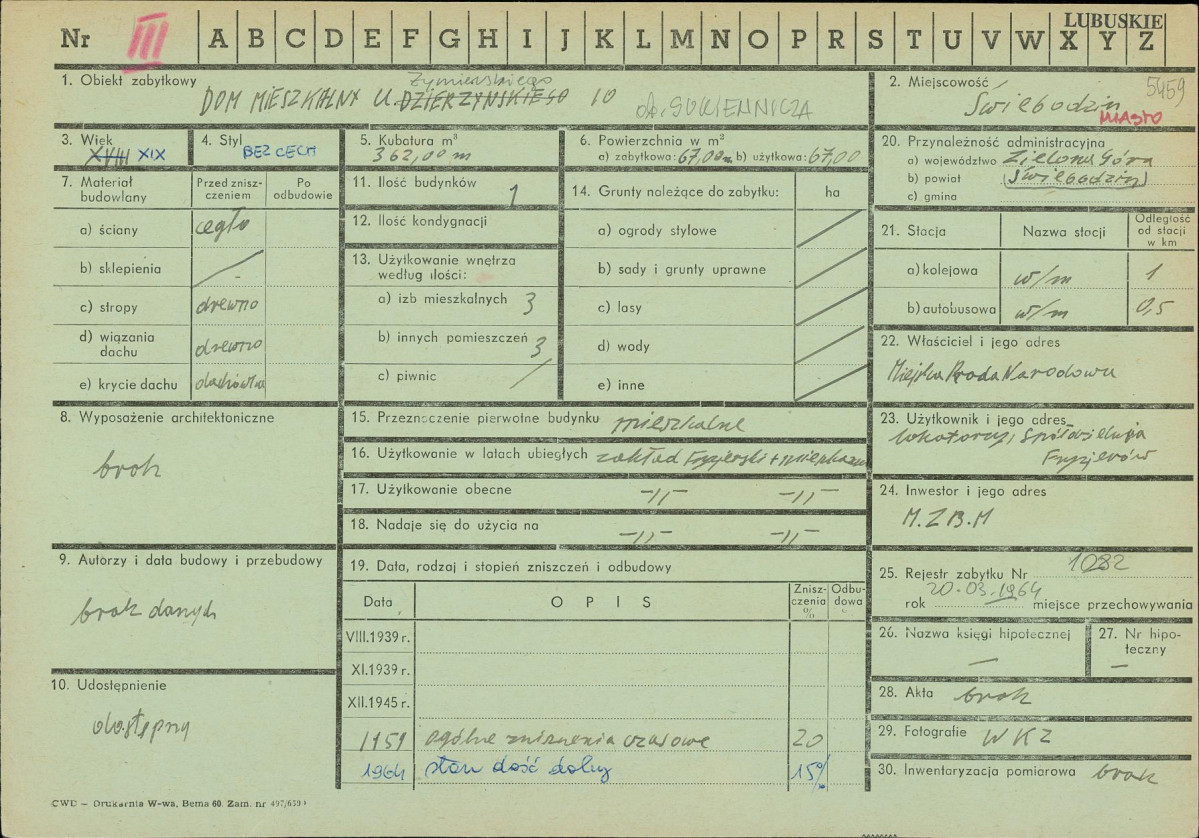 Nr III A B C D E F G H I J K L M N O P R S T U V W X Y Z
LUBUSKIE
1. Obiekt zabytkowy
Żymierskiego
DOM MIESZKALNY U. DZIERŻYŃSKIEGO 10
ob. SUKIENNICZA
2. Miejscowość
5459
Świebodzin
MIASTO
3. Wiek
XVIII XIX
4. Styl
BEZ CECH
5. Kubatura m³
362,00 m
6. Powierzchnia w m²
a) zabytkowa: 67,00 m b) użytkowa: 67,00
20. Przynależność administracyjna
a) województwo Zielona Góra
b) powiat (Świebodzin)
c) gmina
7. Materiał budowlany
Przed znisz-
czeniem
Po
odbudowie
a) ściany cegła
b) sklepienia –
c) stropy drewno
d) wiązania
dachu drewno
e) krycie dachu dachówka
11. Ilość budynków 1
12. Ilość kondygnacji
13. Użytkowanie wnętrza
według ilości:
a) izb mieszkalnych 3
b) innych pomieszczeń 3
c) piwnic /
14. Grunty należące do zabytku: ha
a) ogrody stylowe
b) sady i grunty uprawne
c) lasy
d) wody
e) inne
21. Stacja
Nazwa stacji
Odległość
od stacji
w km
a) kolejowa w/m 1
b) autobusowa w/m 0,5
22. Właściciel i jego adres
Miejska Rada Narodowa
8. Wyposażenie architektoniczne
brak
15. Przeznaczenie pierwotne budynku mieszkalne
16. Użytkowanie w latach ubiegłych zakład fryzjerski +
17. Użytkowanie obecne -//- -//-
18. Nadaje się do użycia na -//- -//-
23. Użytkownik i jego adres
lokatorzy, Spółdzielnia
Fryzjerów
24. Inwestor i jego adres
M.Z.B.M
9. Autorzy i data budowy i przebudowy
brak danych
10. Udostępnienie
dostępny
19. Data, rodzaj i stopień zniszczeń i odbudowy
Data
OPIS
Znisz-
czenia
%
Odbu-
dowa
VIII.1939 r.
XI.1939 r.
XII.1945 r.
1959 ogólne zniszczenia czasowe 20
1964 stan dość dobry 15%
25. Rejestr zabytku Nr 1082
20.03.1964
rok miejsce przechowywania
26. Nazwa księgi hipotecznej
—
27. Nr hipo-
teczny
—
28. Akta brak
29. Fotografie WKZ
30. Inwentaryzacja pomiarowa brak
CWD – Drukarnia W-wa, Bema 60. Zam. nr